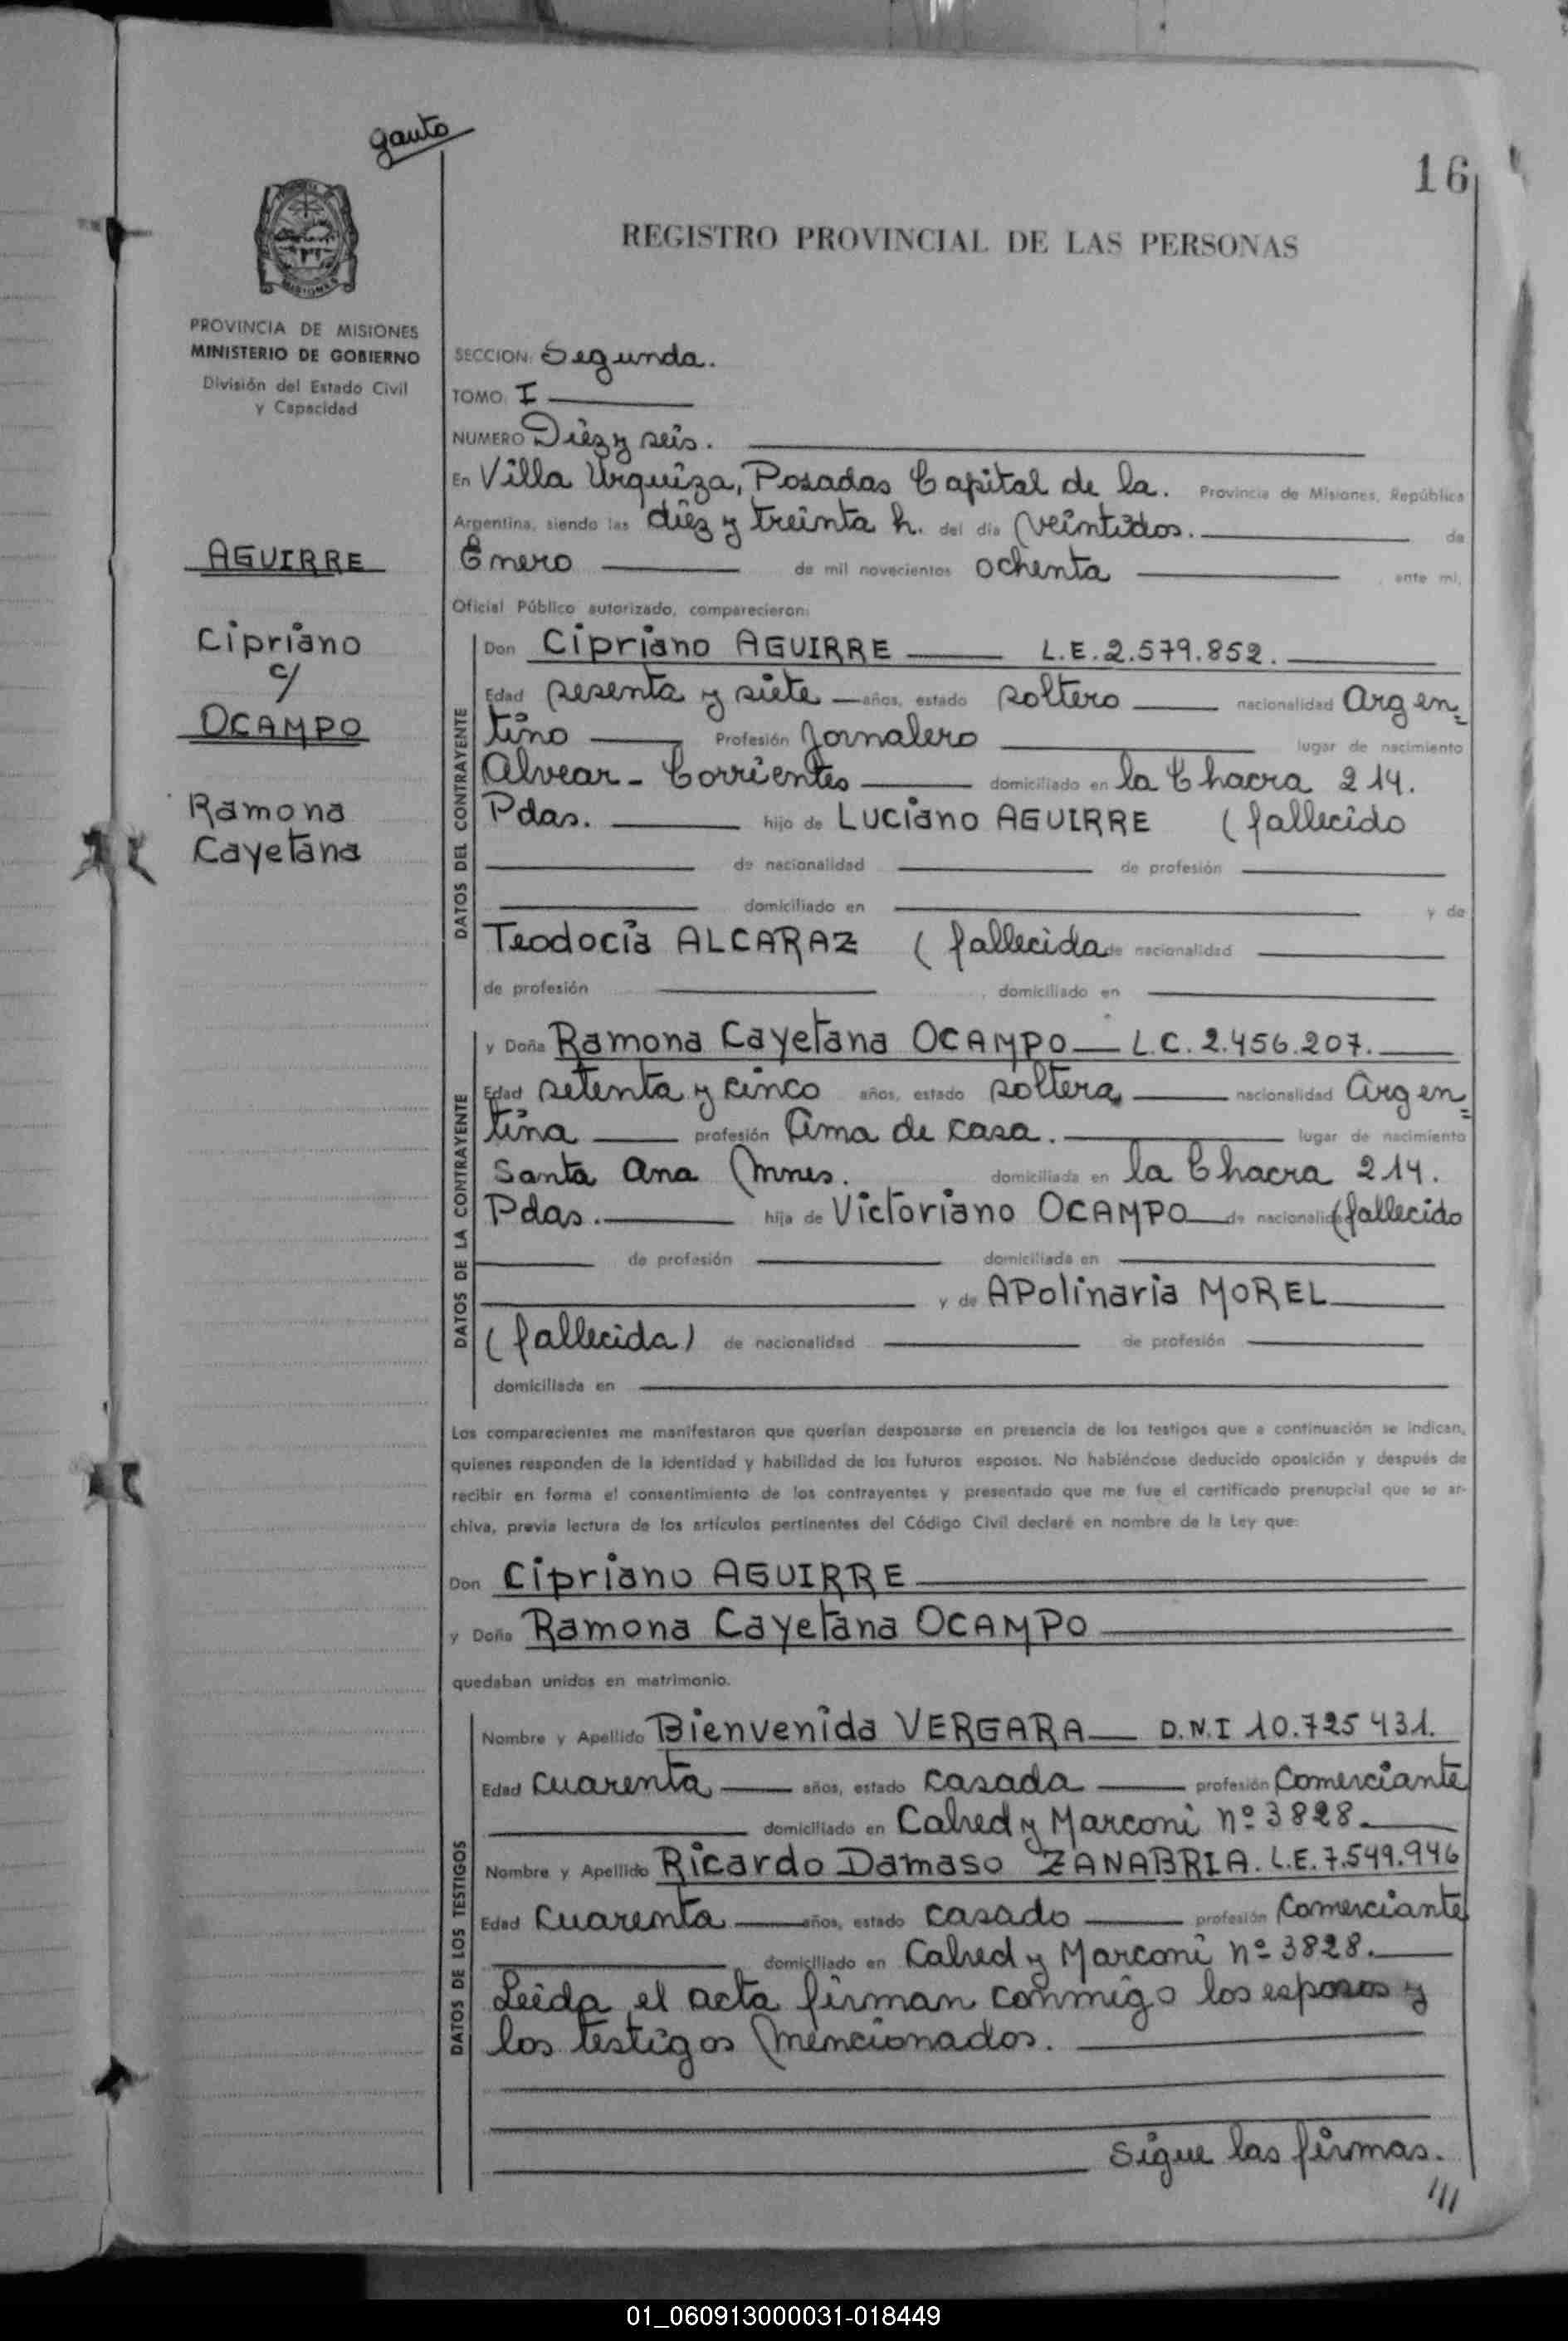 gauto
16
REGISTRO PROVINCIAL DE LAS PERSONAS
MISIONES
PROVINCIA DE MISIONES
MINISTERIO DE GOBIERNO
División del Estado Civil
y Capacidad
AGUIRRE
Cipriano
c/
OCAMPO
Ramona
Cayetana
SECCION: Segunda.
TOMO: I
NUMERO Diéz y seis.
En Villa Urquiza, Posadas Capital de la. Provincia de Misiones, República
Argentina, siendo las diéz y treinta h. del día veintidos. de
Enero de mil novecientos ochenta ante mi,
Oficial Público autorizado, comparecieron:
DATOS DEL CONTRAYENTE
Don Cipriano AGUIRRE L.E. 2.579.852.
Edad sesenta y siete años, estado soltero nacionalidad Argen=
tino Profesión Jornalero lugar de nacimiento
Alvear - Corrientes domiciliado en la Chacra 214.
Pdas. hijo de Luciano AGUIRRE (fallecido
de nacionalidad de profesión
domiciliado en y de
Teodocia ALCARAZ (fallecida de nacionalidad
de profesión domiciliado en
DATOS DE LA CONTRAYENTE
y Doña Ramona Cayetana OCAMPO L.C. 2.456.207.
Edad setenta y cinco años, estado soltera nacionalidad Argen=
tina profesión Ama de casa. lugar de nacimiento
Santa Ana Mnes. domiciliada en la Chacra 214.
Pdas. hija de Victoriano OCAMPO de nacionalidad (fallecido
de profesión domiciliada en
y de APolinaria MOREL
(fallecida) de nacionalidad de profesión
domiciliada en
Los comparecientes me manifestaron que querían desposarse en presencia de los testigos que a continuación se indican,
quienes responden de la identidad y habilidad de los futuros esposos. No habiéndose deducido oposición y después de
recibir en forma el consentimiento de los contrayentes y presentado que me fue el certificado prenupcial que se ar-
chiva, previa lectura de los artículos pertinentes del Código Civil declaré en nombre de la Ley que:
Don Cipriano AGUIRRE
y Doña Ramona Cayetana OCAMPO
quedaban unidos en matrimonio.
DATOS DE LOS TESTIGOS
Nombre y Apellido Bienvenida VERGARA D.N.I 10.725 431.
Edad cuarenta años, estado casada profesión Comerciante
domiciliado en Calred y Marconi nº 3828.
Nombre y Apellido Ricardo Damaso ZANABRIA. L.E. 7.549.946
Edad cuarenta años, estado casado profesión Comerciante
domiciliado en Calred y Marconi nº 3828.
Leida el acta firman conmigo los esposos y
los testigos mencionados.
Sigue las firmas.
///
01_060913000031-018449